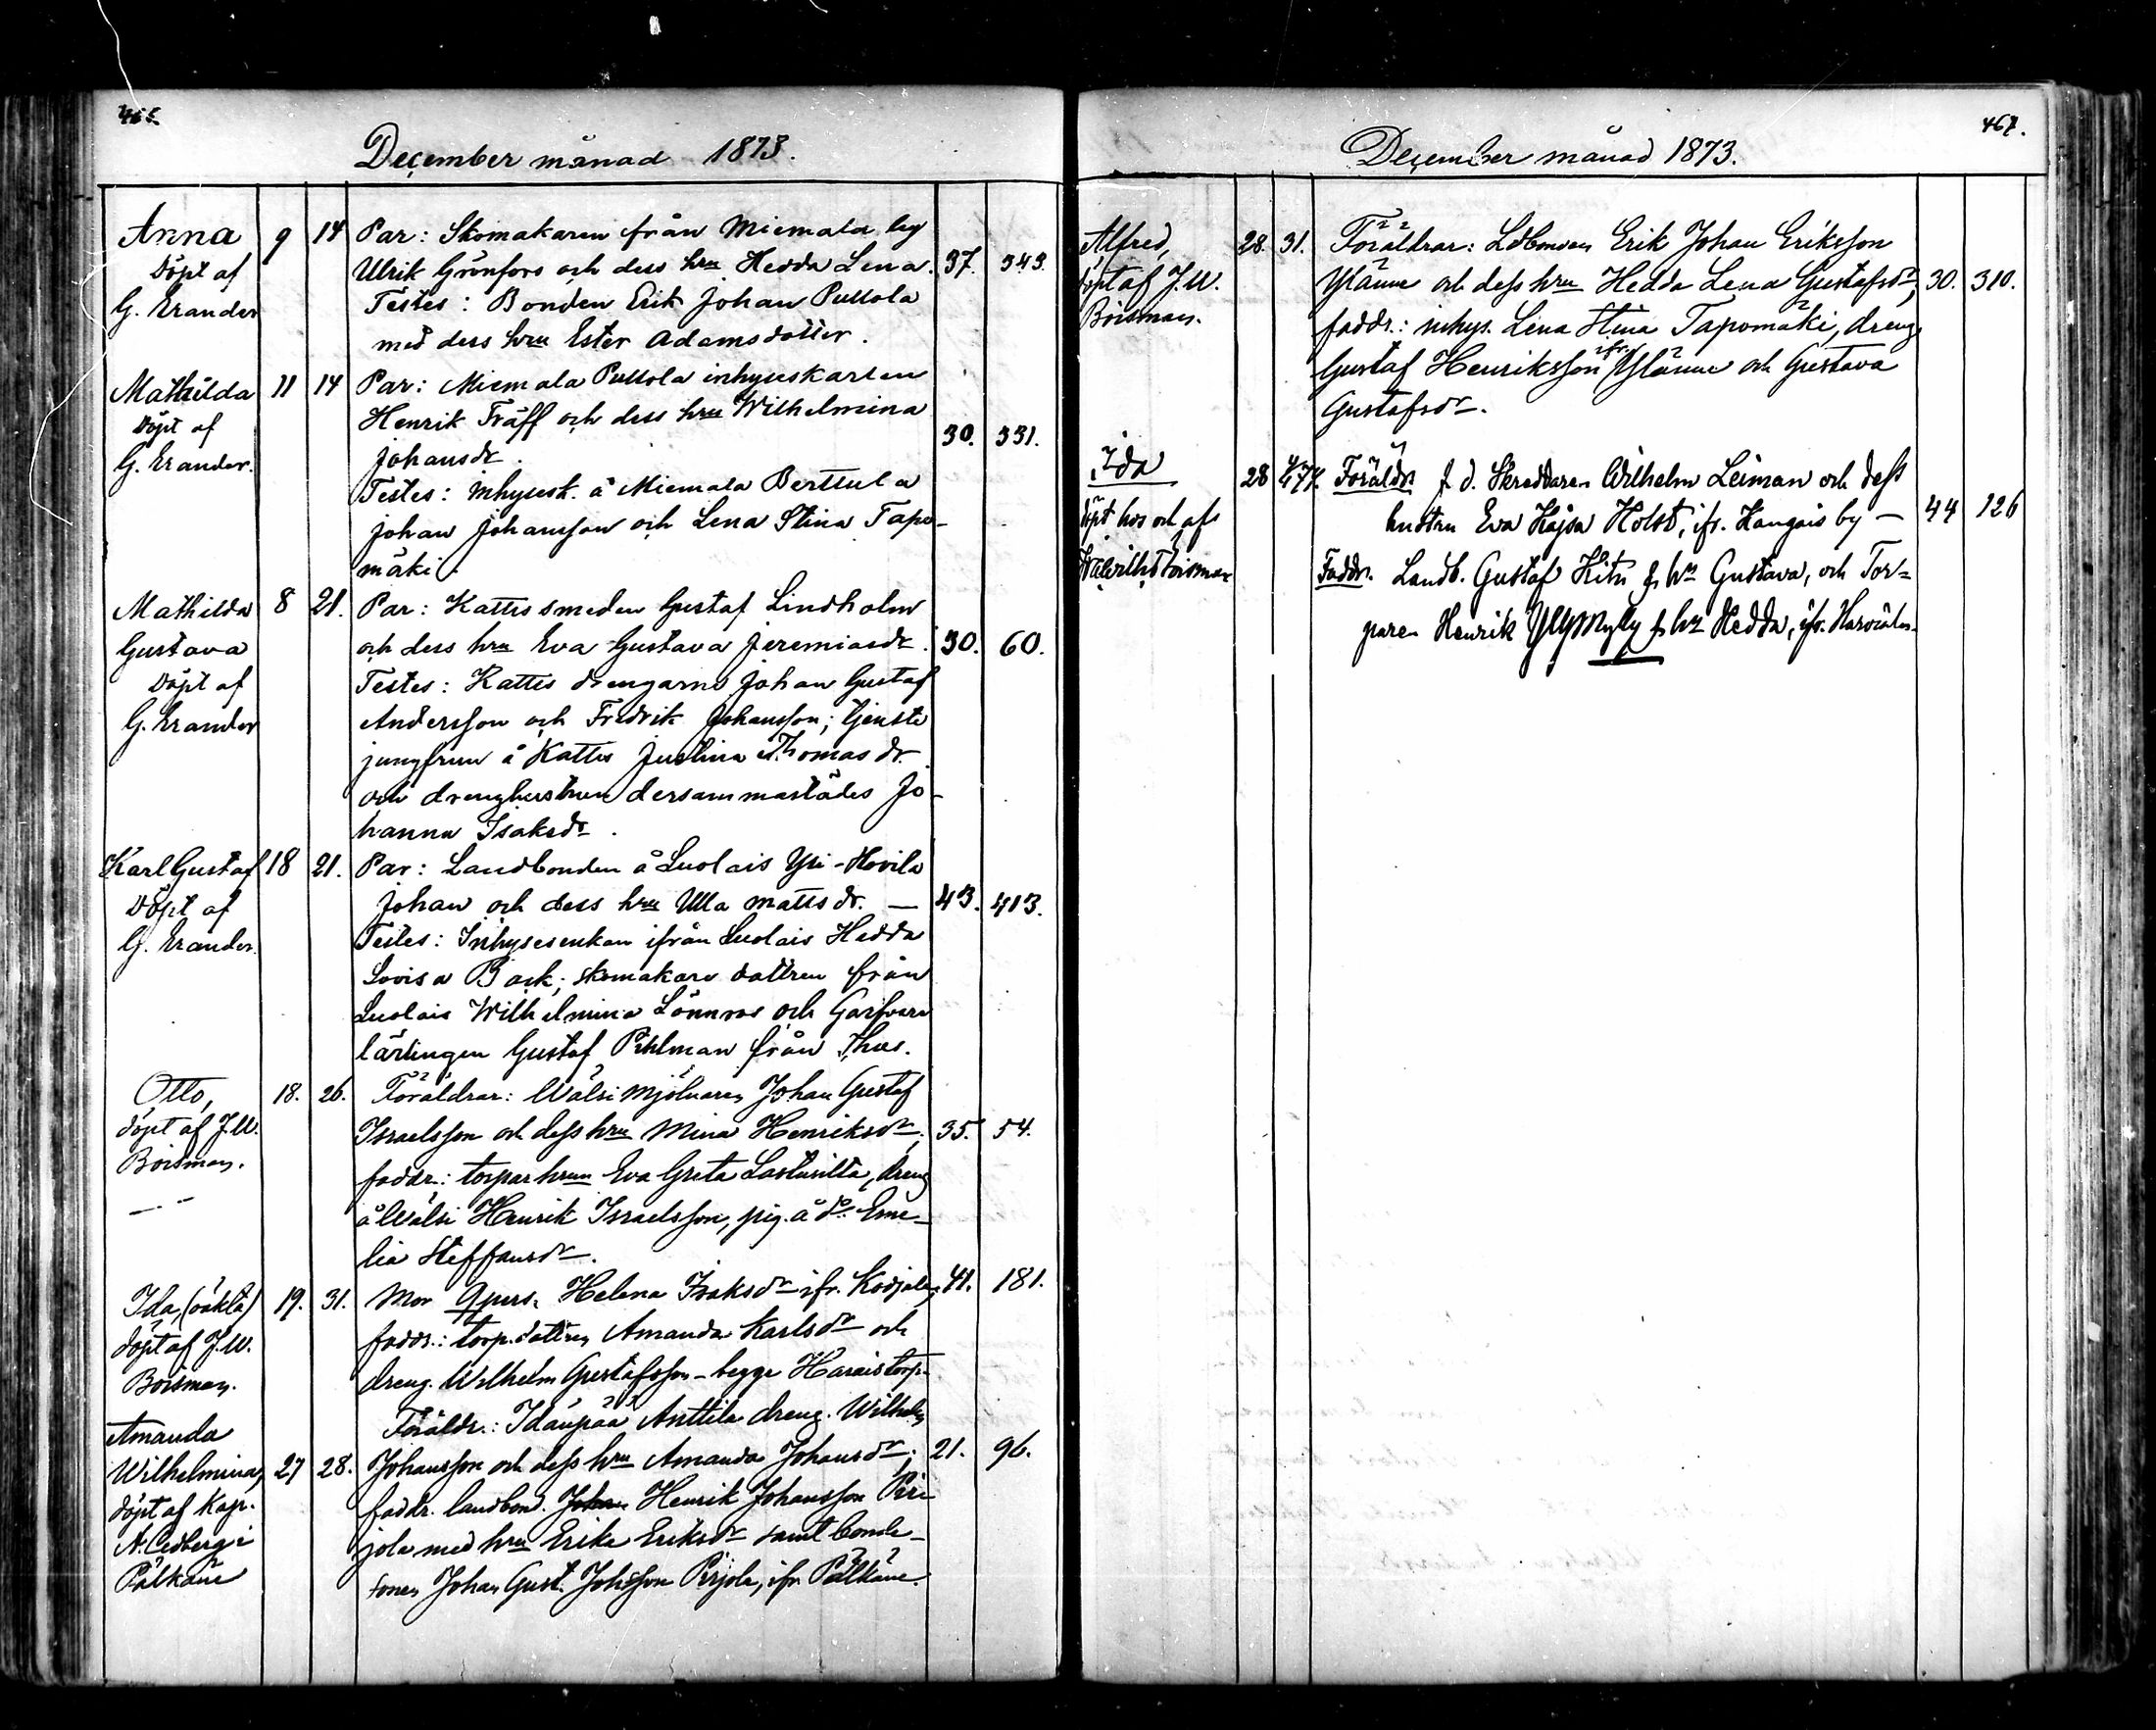 466.
December månad 1873.
Anna 9 14 Par: Skomakaren från Miemala by
Döpt af Ulrik Grönfors och dess hru Hedda Lena. 37. 343.
G. Erander Testes: Bonden Erik Johan Pussola
med dess hru Ester Adamsdotter.
Mathilda 11 14 Par: Miemala Pussola inhyseskarlen
Döpt af Henrik Träff och dess hru Wilhelmina 30. 331.
G. Erander. Johansdr.
Testes: Inhysesk. å Miemala Berttula
Johan Johansson och Lena Stina Tapo-
mäki.
Mathilda 8 21. Par: Kattis smeden Gustaf Lindholm
Gustava och dess hru Eva Gustava Jeremiasdr. 30. 60.
Döpt af Testes: Kattis drengarne Johan Gustaf
G. Erander Andersson och Fredrik Johansson; tjenste
jungfrun å Kattis Justina Thomasdr.
och drenghustrun dersammastädes Jo-
hanna Isaksdr.
Karl Gustaf 18 21. Par: Landbonden å Luolais Yli-Hovila
Döpt af Johan och dess hru Ulla Mattsdr. — 43. 413.
G. Erander. Testes: Inhysesenkan ifrån Luolais Hedda
Lovisa Back; skomakare dottren från
Luolais Wilhelmina Lönnros och Garfvare
lärlingen Gustaf Pihlman från Thus.
Otto, 18. 26. Föräldrar: Wälsi mjölnaren Johan Gustaf
döpt af J.W. Israelsson och dess hru Mina Henriksdr; 35. 54.
Boisman. faddr.: torparhrun Eva Greta Lastusilta, dreng
å Wälsi Henrik Israelsson, pig. å do Eme-
lia Steffansdr.
Ida, (oäkta) 19. 31. Mor Qpers. Helena Isaksdr ifr. Kodjala, 41. 181.
döpt af J.W. faddr.: torp.dottren Amanda Karlsdr och
Boisman. dreng. Wilhelm Gustafsson – begge Harais torp.
Amanda Föräldr.: Idänpää Anttila dreng. Wilhelm
Wilhelmina, 27 28. Johansson och dess hru Amanda Johansdr; 21. 96.
döpt af Kap. faddr. landbond. Johan Henrik Johansson Piri-
A. Cedberg i jola med hru Erika Eriksdr samt bonde-
Pälkäne sonen Johan Gust. Johsson Pirjola, ifr Pälkäne.
467.
December månad 1873.
Alfred, 28. 31. Föräldrar: Ldbonden Erik Johan Eriksson
döpt af J.W. Yllänne och dess hru Hedda Lena Gustafsdr, 30. 310.
Boisman. faddr.: inhys. Lena Stina Tapomäki, dreng
Gustaf Henriksson ifr. Yllänne och Gustava
Gustafsdr.
Ida 28 Föräldr. f. d. Skreddaren Wilhelm Leiman och dess
döpt hos och af hustru Eva Kajsa Holst, ifr. Kangais by — 44 126
Boisman Faddr. Landb. Gustaf Hitu & hru Gustava, och Tor=
paren Henrik & hru Hedda, ifr.